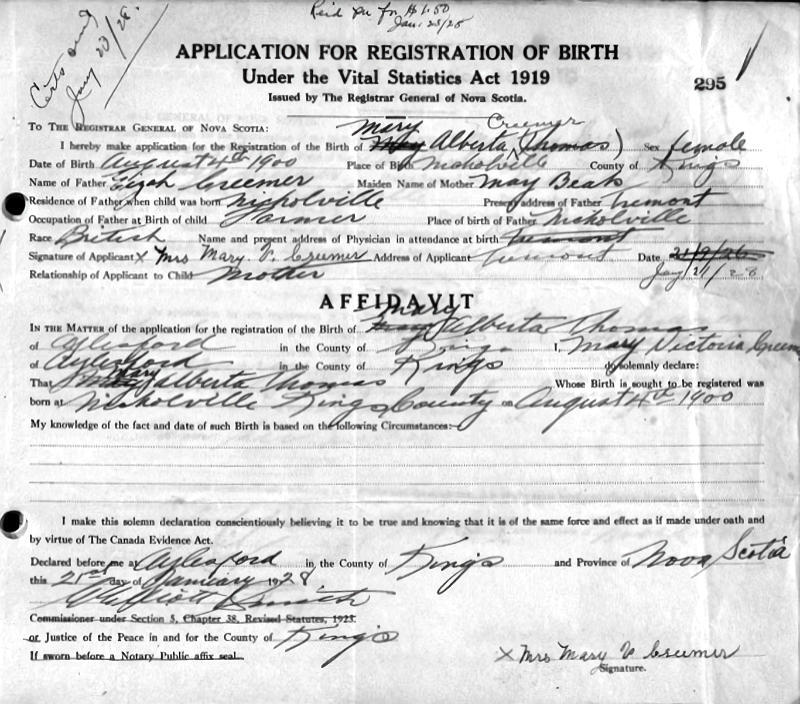 Certs and
Jany 23/28.
Reid Dr for $1.50
Jan. 23/28
APPLICATION FOR REGISTRATION OF BIRTH
Under the Vital Statistics Act 1919
295
Issued by The Registrar General of Nova Scotia.
TO THE REGISTRAR GENERAL OF NOVA SCOTIA:
Mary Creemer
I hereby make application for the Registration of the Birth of May Alberta (Thomas) Sex female
Date of Birth August 4th 1900 Place of Birth Nicholville County of Kings
Name of Father Elijah Creemer Maiden Name of Mother May Beals
Residence of Father when child was born Nicholville Present address of Father Tremont
Occupation of Father at Birth of child Farmer Place of birth of Father Nicholville
Race British Name and present address of Physician in attendance at birth Tremont
Signature of Applicant X Mrs Mary V. Creemer Address of Applicant Tremont Date 21/9/26
Relationship of Applicant to Child Mother Jany 21/28
AFFIDAVIT
Mary
IN THE MATTER of the application for the registration of the Birth of Alberta Thomas
of Aylesford in the County of Kings I, Mary Victoria Creemer
of Aylesford in the County of Kings do solemnly declare:
Mary
That Alberta Thomas Whose Birth is sought to be registered was
born at Nicholville Kings County on August 4th 1900
My knowledge of the fact and date of such Birth is based on the following Circumstances:
I make this solemn declaration conscientiously believing it to be true and knowing that it is of the same force and effect as if made under oath and
by virtue of The Canada Evidence Act.
Declared before me at Aylesford in the County of Kings and Province of Nova Scotia
this 21st day of January 1928.
Smith
Commissioner under Section 5, Chapter 38, Revised Statutes, 1923.
or Justice of the Peace in and for the County of Kings
If sworn before a Notary Public affix seal.
X Mrs Mary V Creemer
Signature.